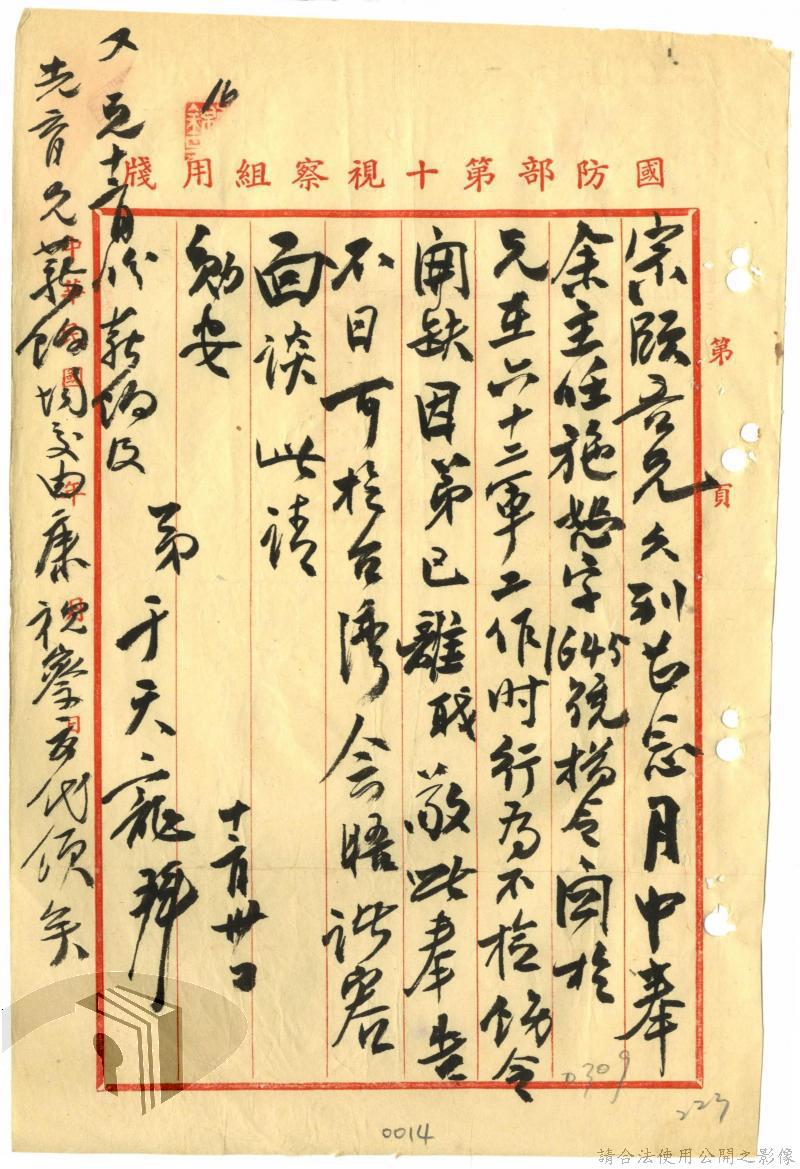 國防部第十視察組用牋
第 頁
宗頤吾兄久到甚念月中奉
余主任施懋字1645號指令因於
兄在六十二軍工作时行为不檢飭令
開缺因弟已離职敬此奉告
不日可於台湾会晤诸容
面談此请
勛安
弟于天寵拜
十二月卅日
又 兄十二月份薪餉及
先育兄薪餉均交由康视察官代領矣
16
0309
223
0014
請合法使用公開之影像